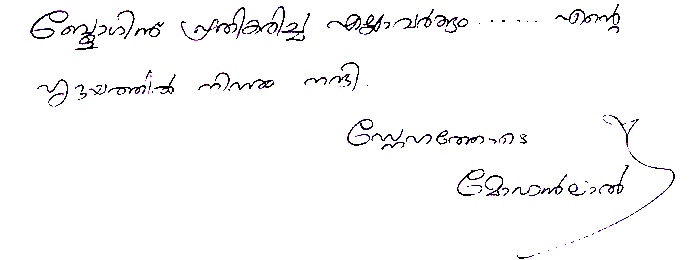 ബ്ലോഗിന് പ്രതികരിച്ച എല്ലാവർക്കും ...... എന്റെ
ഹൃദയത്തിൽ നിന്നും നന്ദി.
സ്നേഹത്തോടെ
മോഹൻലാൽ